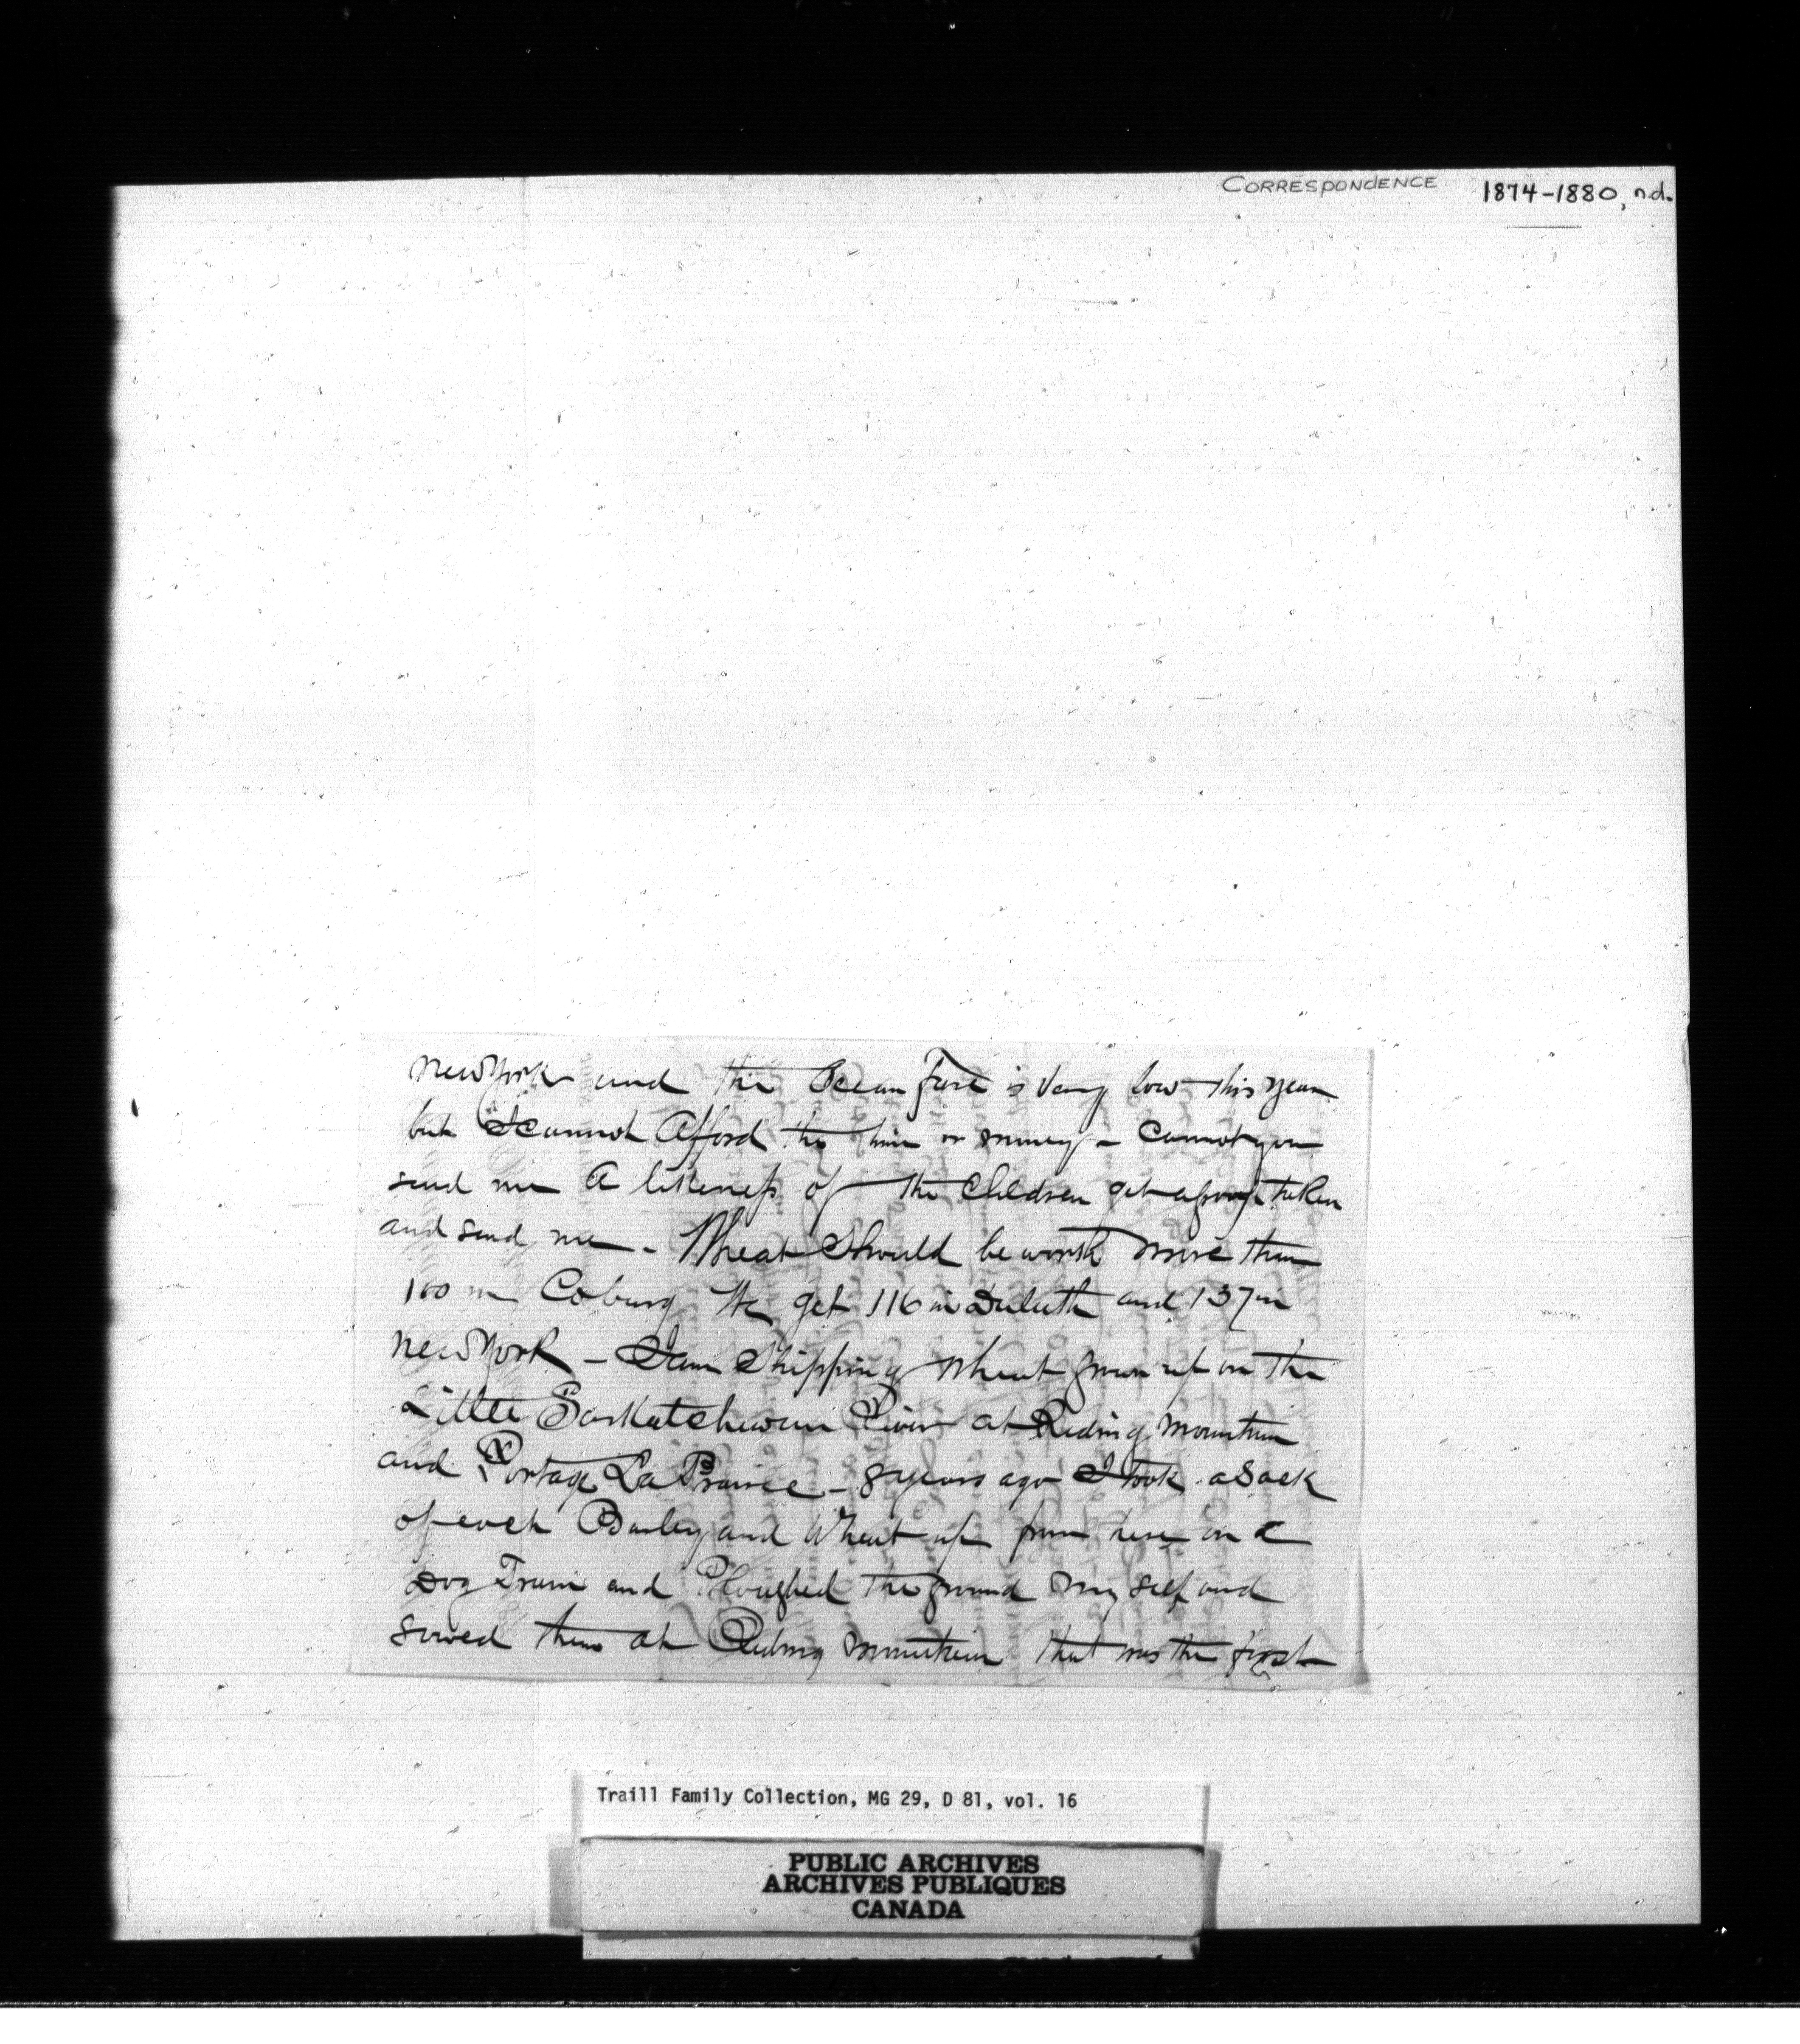 CORRESPONDENCE 1874-1880, n.d.
New York and the Ocean Fare is Very low this year
but I cannot Afford the time or money - Cannot you
send me A likeness of the Children get a group taken
and send me - Wheat Should be worth more than
100 in Coburg We get 116 in Duluth and 137 in
New York - I am Shipping Wheat grown up on the
Little Saskatchewan River at Riding Mountain
and Portage La Prairie - 8 years ago I took a Sack
of each Barley and Wheat up from here on a
Dog Train and Ploughed the ground my self and
sowed them at Riding Mountain that was the first
Traill Family Collection, MG 29, D 81, vol. 16
PUBLIC ARCHIVES
ARCHIVES PUBLIQUES
CANADA